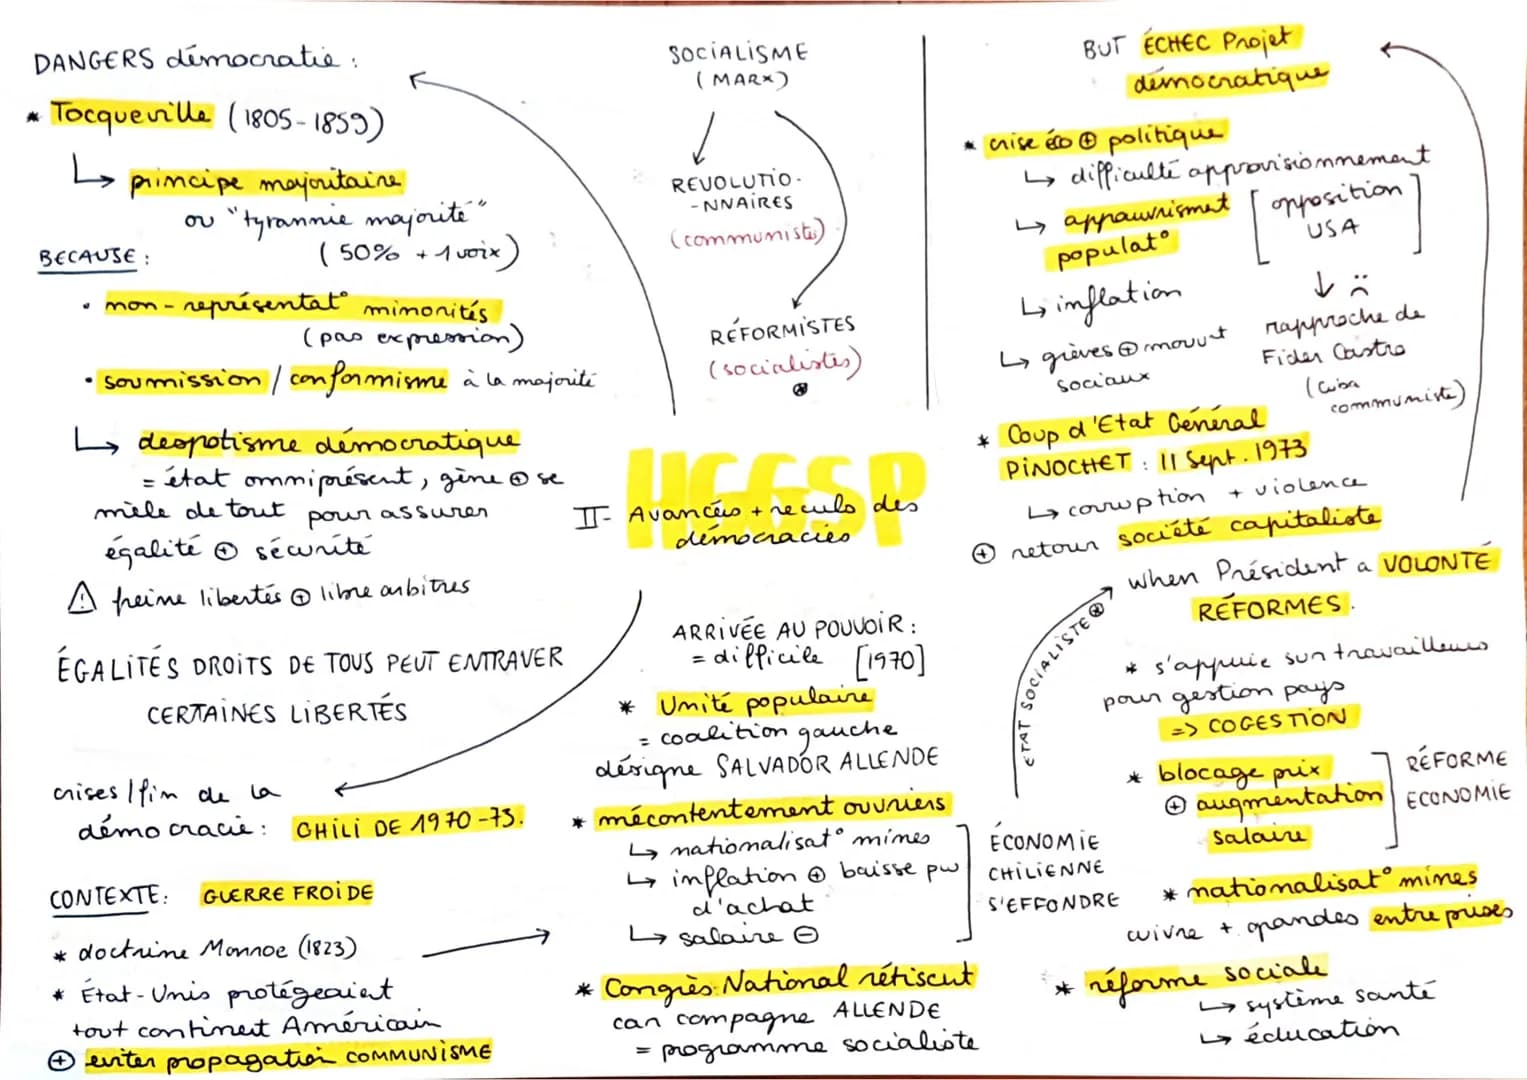 DANGERS démocratie :
* Tocqueville (1805-1859)
↳ principe majoritaire
ou "tyrannie majorité"
(50% + 1 voix)
BECAUSE :
• non-représentat° minorités
(pas expression)
• soumission / conformisme à la majorité
↳ despotisme démocratique
= état omniprésent, gène ⊕ se
mèle de tout pour assurer
égalité ⊕ sécurité
⚠ freine libertés ⊕ libre arbitres
ÉGALITÉS DROITS DE TOUS PEUT ENTRAVER
CERTAINES LIBERTÉS
crises / fin de la
démocracie : CHILI DE 1970-73.
CONTEXTE : GUERRE FROIDE
* doctrine Monroe (1823)
* État-Unis protégeaient
tout continent Américain
⊕ eviter propagation COMMUNISME
SOCIALISME
(MARX)
REVOLUTIO-
-NNAIRES
(communistes)
RÉFORMISTES
(socialistes)
⊛
HGGSP
II- Avancées + reculs des
démocracies
ARRIVÉE AU POUVOIR :
= difficile [1970]
* Unité populaire
= coalition gauche
désigne SALVADOR ALLENDE
* mécontentement ouvriers
↳ nationalisat° mines
↳ inflation ⊕ baisse pw
d'achat
↳ salaire ⊖
ÉCONOMIE
CHILIENNE
S'EFFONDRE
* Congrès National rétiscent
car compagne ALLENDE
= programme socialiste
BUT ÉCHEC Projet
démocratique
* crise éco ⊕ politique
↳ difficulté approvisionnement
↳ appauvrismet
populat°
[opposition
USA]
↓ :(
rapproche de
Fider Castro
(Cuba
communiste)
↳ inflation
↳ grèves ⊕ mouvt
sociaux
* Coup d'Etat Général
PINOCHET : 11 Sept. 1973
↳ corruption + violence
⊕ retour société capitaliste
ETAT SOCIALISTE ⊛
when Président a VOLONTÉ
RÉFORMES.
* s'appuie sur travailleurs
pour gestion pays
=> COGESTION
* blocage prix
⊕ augmentation
salaire
RÉFORME
ECONOMIE
* nationalisat° mines
cuivre + grandes entreprises
* réforme sociale
↳ système santé
↳ éducation